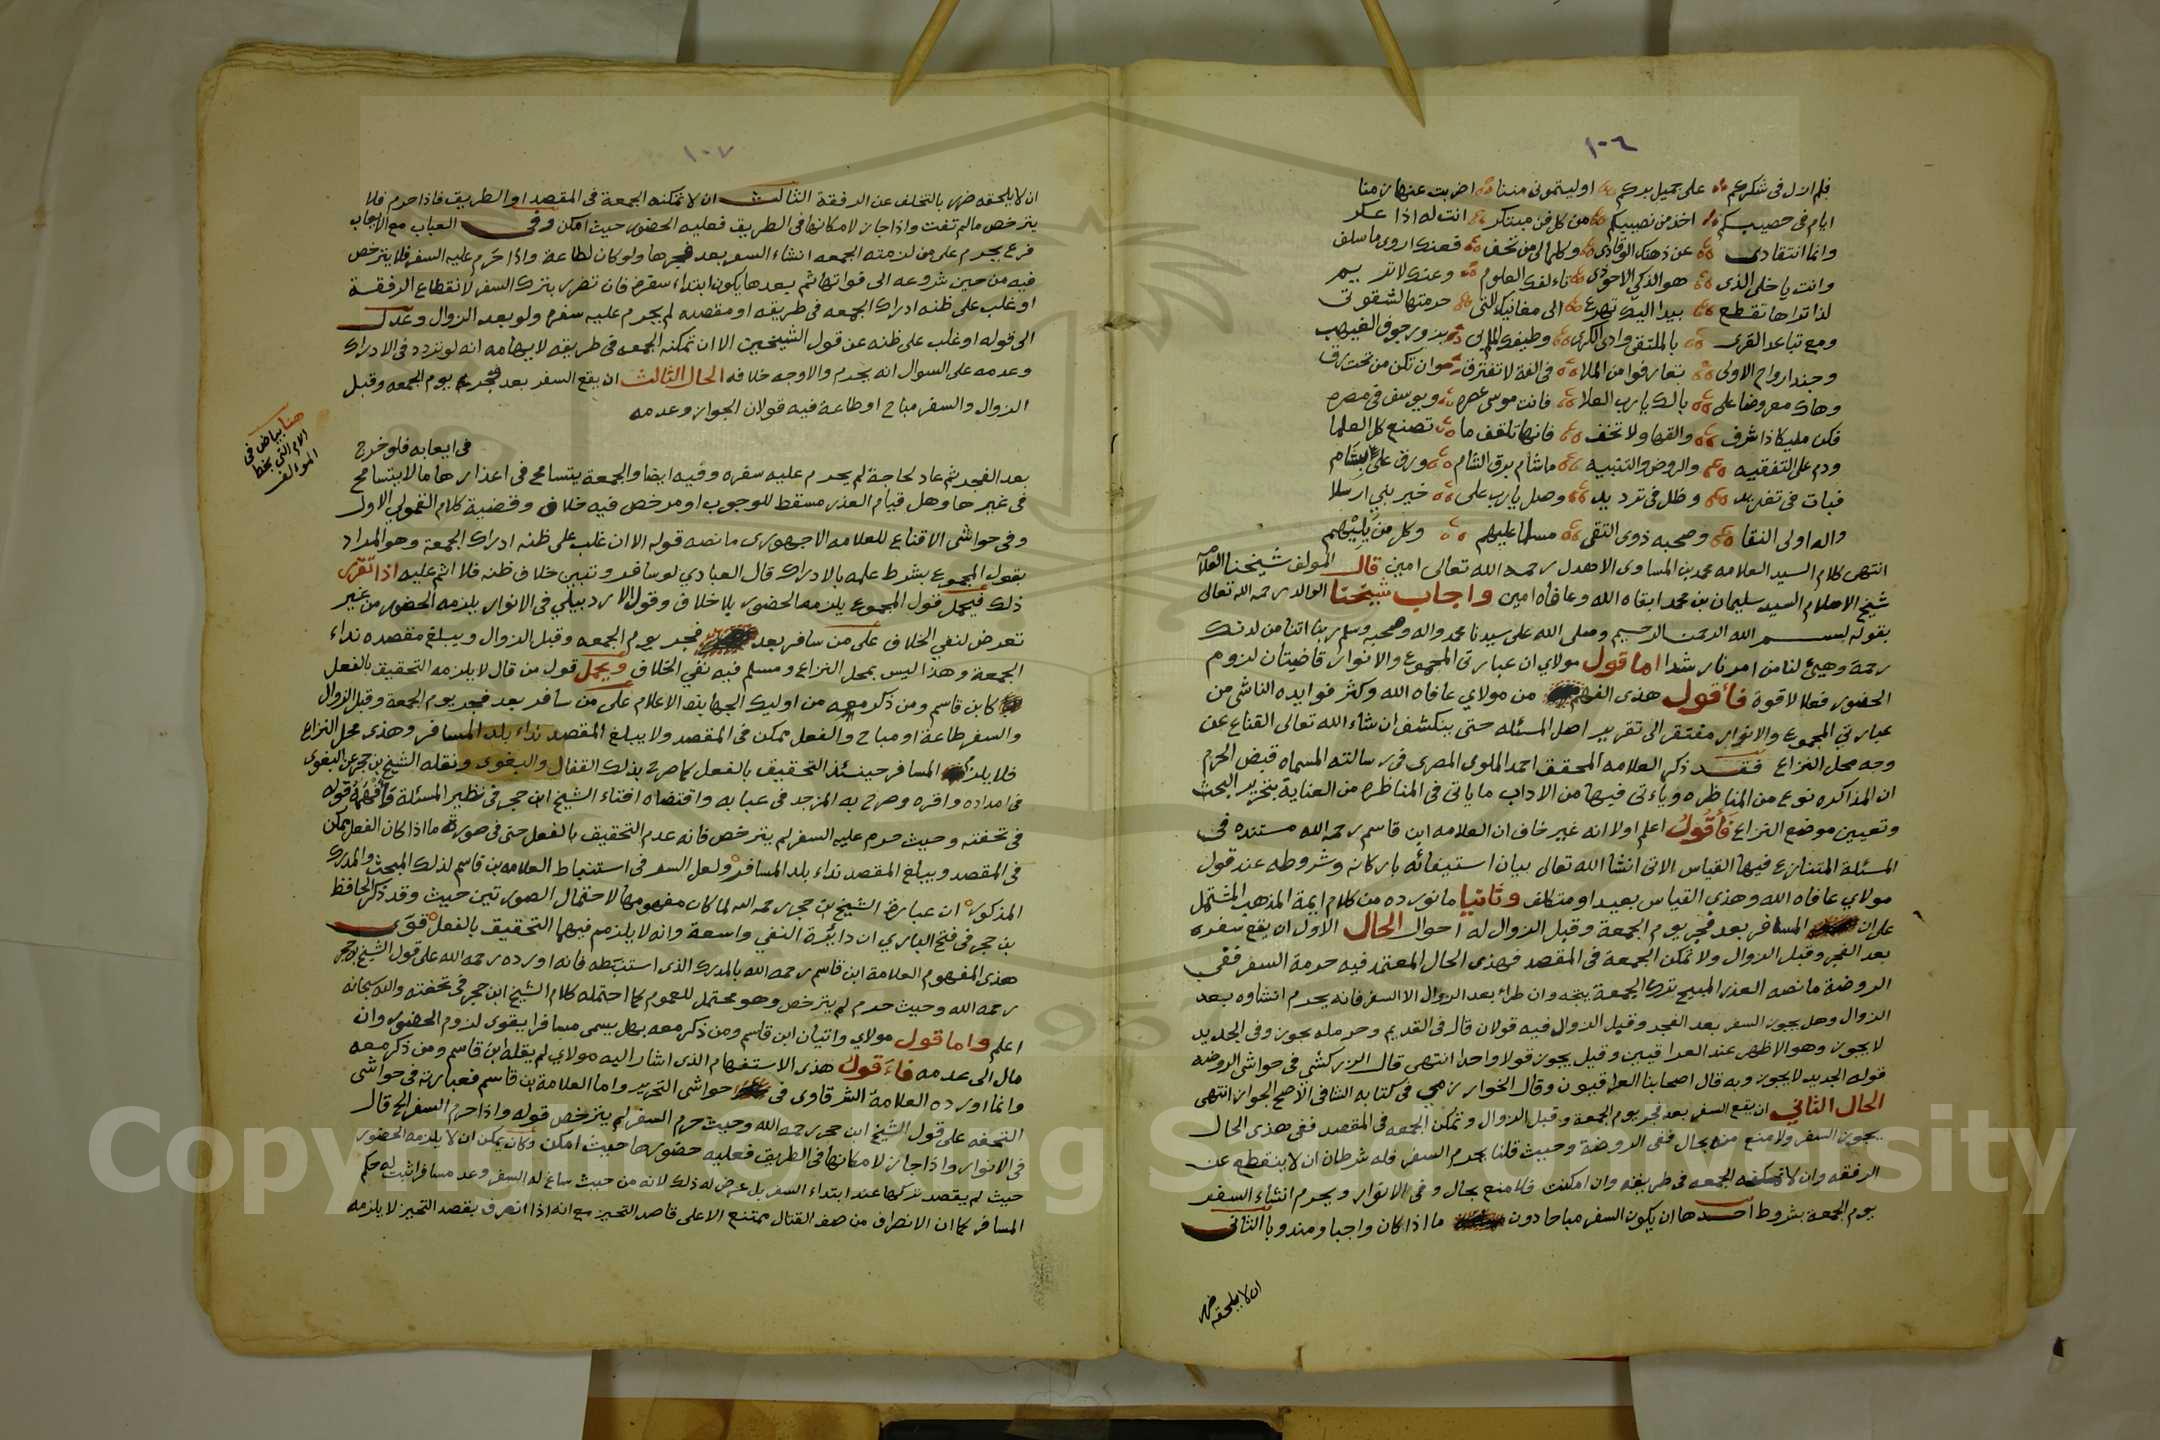 ١٠٦
فلم ازل في شكركم على جميل بركم اوليتموني مننا اضربت عنها زمنا
ايام في خصيبكم اخذ من نصيبكم من كل فن مبتكر انت له اذا عكر
وانما انتقادي عن ذهنك الوقادي وكلما لي من تحف فعنك اروى ما سلف
وانت يا خلي الذي هو الذكي الاحوذي ناء لفك العلوم وعنك لا تريم
لذا تراها تقطع بيدا اليك تهرع الى مغانيك التي حرمتها لشقوتي
ومع تباعد القرى بالملتقى وادي الكرى وطيفك الملم بي يزور جوف الغيهب
وجند ارواح الاولى تعارفوا من الملا في الفة لا تفترق وان تكن من تحت رق
وهاك معروضا على بالك يا رب العلا فانت موسى عصره ويوسف في مصره
فكن مليكا ذا شرف والقها ولا تخف فانها تلقف ما تصنع كل العلما
ودم على التفقيه والروض والتنبيه ما شام برق الشام ورق على البشام
فبات في تغريد وظل في ترديد وصل يا رب على خير نبي ارسلا
واله اولي النقا وصحبه ذوي التقى مسلما عليهم وكل من يليهم
انتهى كلام السيد العلامه محمد بن المساوى الاهدل رحمه الله تعالى امين قال المولف شيخنا العلامه
شيخ الاسلام السيد سليمان بن محمد ابقاه الله وعافاه امين واجاب شيخنا الوالد رحمه الله تعالى
بقوله بسم الله الرحمن الرحيم وصلى الله على سيدنا محمد واله وصحبه وسلم ربنا اتنا من لدنك
رحمة وهيئ لنا من امرنا رشدا اما قول مولاي ان عبارتي المجموع والانوار قاضيتان لزوم
الحضور فعلا لا قوة فاقول هذى الفهم من مولاي عافاه الله وكثر فوايده الناشي من
عبارتي المجموع والانوار مفتقر الى تقرير اصل المسئله حتى ينكشف ان شاء الله تعالى القناع عن
وجه محل النزاع فقد ذكر العلامه المحقق احمد الملوي المصري في رسالته المسماه قبض الحرم
ان المذاكره نوع من المناظره وياءتي فيها من الاداب ما ياتي في المناظره من العناية بتحرير البحث
وتعيين موضع النزاع فأقول اعلم اولا انه غير خاف ان العلامه ابن قاسم رحمه الله مستنده في
المسئلة المتنازع فيها القياس الاتي انشا الله تعالى بيان استيفائه باركانه وشروطه عند قول
مولاي عافاه الله وهذي القياس بعيد او متكلف وثانيا ما نورده من كلام ايمة المذهب المشتمل
على ان المسافر بعد فجر يوم الجمعة وقبل الزوال له احوال الحال الاول ان يقع سفره
بعد الفجر وقبل الزوال ولا تمكن الجمعة في المقصد فهذي الحال المعتمد فيه حرمة السفر ففي
الروضة ما نصه العذر المبيح ترك الجمعة يبيحه وان طراء بعد الزوال الا السفر فانه يحرم انشاوه بعد
الزوال وهل يجوز السفر بعد الفجر وقبل الزوال فيه قولان قال في القديم وحرمله يجوز وفي الجديد
لا يجوز وهو الاظهر عند العراقيين وقيل يجوز قولا واحدا انتهى قال الزركشي في حواشي الروضه
قوله الجديد لا يجوز وبه قال اصحابنا العراقيون وقال الخوارزمي في كتابه الشافي الاصح الجواز انتهى
الحال الثاني ان يقع السفر بعد فجر يوم الجمعة وقبل الزوال وتمكن الجمعه في المقصد ففي هذى الحال
يجوز السفر ولا منع منه بحال ففي الروضة وحيث قلنا يحرم السفر فله شرطان ان لا ينقطع عن
الرفقه وان لا تمكنه الجمعه في طريقه وان امكنت فلا منع بحال وفي الانوار ويحرم انشاء السفر
يوم الجمعة بشروط احدها ان يكون السفر مباحا دون ما اذا كان واجبا ومندوبا الثاني
ان لا يلحقه ضرر
١٠٧
ان لا يلحقه ضرر بالتخلف عن الرفقة الثالث ان لا تمكنه الجمعة في المقصد او الطريق فاذا حرم فلا
يترخص ما لم تفت واذا جاز لامكانها في الطريق فعليه الحضور حيث امكن وفي العباب مع الايعاب
فرع يحرم على من لزمته الجمعه انشاء السفر بعد فجرها ولو كان لطاعة واذا حرم عليه السفر فلا يترخص
فيه من حين شروعه الى فواتها ثم بعدها يكون ابتداء سفره فان تضرر بترك السفر لانقطاع الرفقة
او غلب على ظنه ادراك الجمعه في طريقه او مقصده لم يحرم عليه سفره ولو بعد الزوال وعدل
الى قوله او غلب على ظنه عن قول الشيخين الا ان تمكنه الجمعه في طريقه لايهامه انه لو تردد في الادراك
وعدمه على السوال انه يحرم والاوجه خلافه الحال الثالث ان يقع السفر بعد فجر يوم الجمعه وقبل
الزوال والسفر مباح او طاعة فيه قولان الجواز وعدمه
في ايعابه فلو خرج
هنا بياض في
الام التي بخط
المؤالف
بعد الفجر ثم عاد لحاجة لم يحرم عليه سفره وفيه ايضا والجمعة يتسامح في اعذارها ما لا يتسامح
في غيرها وهل قيام العذر مسقط للوجوب او مرخص فيه خلاف وقضية كلام القمولي الاول
وفي حواشي الاقناع للعلامه الاجهوري ما نصه قوله الا ان غلب على ظنه ادراك الجمعة وهو المراد
بقول المجموع بشرط علمه بالادراك قال العبادي لو سافر وتبين خلاف ظنه فلا اثم عليه اذا تقرر
ذلك فيحمل قول المجموع يلزمه الحضور بلا خلاف وقول الاردبيلي في الانوار يلزمه الحضور من غير
تعرض لنفي الخلاف على من سافر بعد فجر يوم الجمعه وقبل الزوال ويبلغ مقصده نداء
الجمعة وهذا ليس بمحل النزاع ومسلم فيه نفي الخلاف ويحمل قول من قال لا يلزمه التحقيق بالفعل
كابن قاسم ومن ذكر معه من اوليك الجهابذه الاعلام على من سافر بعد فجر يوم الجمعة وقبل الزوال
والسفر طاعة او مباح والفعل ممكن في المقصد ولا يبلغ المقصد نداء بلد المسافر وهذى محل النزاع
فلا يلزم المسافر حينئذ التحقيق بالفعل كما صرح بذلك القفال والبغوى ونقله الشيخ بن حجر عن البغوى
في امداده واقره وصرح به المزجد في عبابه واقتضاه افتاء الشيخ ابن حجر في نظير المسئلة فأفهم قوله
في تحفته وحيث حرم عليه السفر لم يترخص فانه عدم التحقيق بالفعل حتى في صورة ما اذا كان الفعل يمكن
في المقصد ويبلغ المقصد نداء بلد المسافر ولعل السر في استنباط العلامه بن قاسم لذلك المبحث والمدرك
المذكور ان عبارة الشيخ ابن حجر رحمه الله لما كان مفهومها لاحتمال الصورتين حيث وقد ذكر الحافظ
بن حجر في فتح الباري ان دائرة النفي واسعة وانه لا يلزم فيها التحقيق بالفعل قوى
هذى المفهوم العلامة ابن قاسم رحمه الله بالمدرك الذى استنبطه فانه اورده رحمه الله على قول الشيخ بن حجر
رحمه الله وحيث حرم لم يترخص وهو محتمل للعموم كما احتمله كلام الشيخ ابن حجر في تحفته والله سبحانه
اعلم واما قول مولاي واتيان ابن قاسم ومن ذكر معه بهل يسمى مسافرا يقوى لزوم الحضور وان
مال الى عدمه فاءقول هذى الاستفهام الذى اشار اليه مولاي لم يقله ابن قاسم ومن ذكر معه
وانما اورده العلامة الشرقاوى في حواشي التحرير واما العلامة بن قاسم فعبارته في حواشى
التحفه على قول الشيخ ابن حجر رحمه الله وحيث حرم السفر لم يترخص قوله واذا حرم السفر الخ قال
في الانوار واذا جاز لامكانها في الطريق فعليه حضورها حيث امكن وكان يمكن ان لا يلزمه الحضور
حيث لم يقصد تركها عند ابتداء السفر بل عرض له ذلك لانه من حيث ساغ له السفر وعد مسافرا ثبت له حكم
المسافر كما ان الانصراف من صف القتال ممتنع الا على قاصد التحيز مع انه اذا انصرف بقصد التحيز لا يلزمه